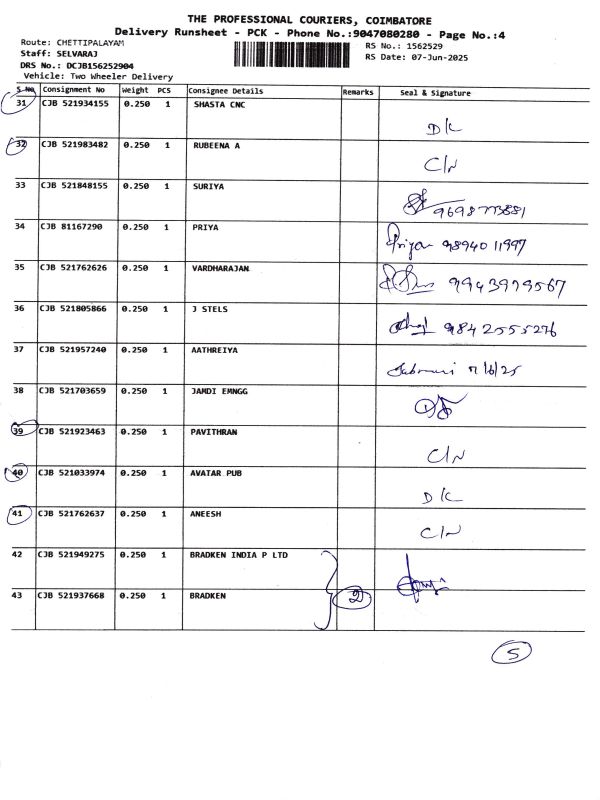 THE PROFESSIONAL COURIERS, COIMBATORE
Delivery Runsheet - PCK - Phone No.:9047080280 - Page No.:4
Route: CHETTIPALAYAM
Staff: SELVARAJ
DRS No.: DCJB156252904
Vehicle: Two Wheeler Delivery
RS No.: 1562529
RS Date: 07-Jun-2025
S No Consignment No Weight PCS Consignee Details Remarks Seal & Signature
31 CJB 521934155 0.250 1 SHASTA CNC D/L
32 CJB 521983482 0.250 1 RUBEENA A C/N
33 CJB 521848155 0.250 1 SURIYA 9698773881
34 CJB 81167290 0.250 1 PRIYA Priya 98940 11997
35 CJB 521762626 0.250 1 VARDHARAJAN 9943979567
36 CJB 521805866 0.250 1 J STELS 9842555276
37 CJB 521957240 0.250 1 AATHREIYA 7/6/25
38 CJB 521703659 0.250 1 JAMDI EMNGG
39 CJB 521923463 0.250 1 PAVITHRAN C/N
40 CJB 521033974 0.250 1 AVATAR PUB D/L
41 CJB 521762637 0.250 1 ANEESH C/N
42 CJB 521949275 0.250 1 BRADKEN INDIA P LTD
43 CJB 521937668 0.250 1 BRADKEN 2
5